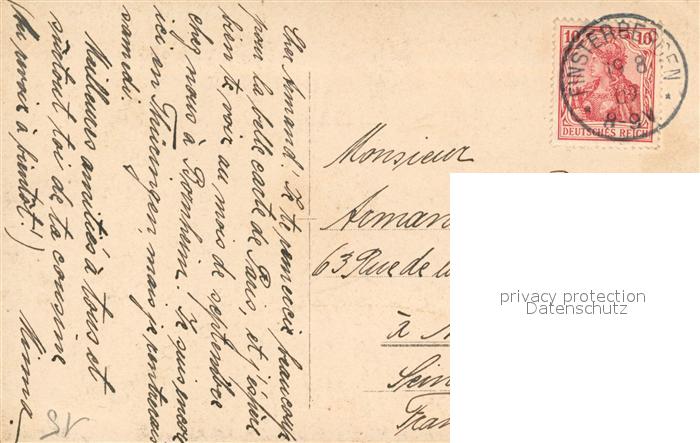 Cher Armand! Je te remercie beaucoup
pour la belle carte de Paris, et j'espère
bien te voir au mois de septembre
chez nous à Bornheim. Je suis encore
ici en Thüringen, mais je rentrerai
samedi.
Meilleures amitiés à tous et
surtout toi de ta cousine
(Au revoir à bientôt!)
10 10
DEUTSCHES REICH
FINSTERBERGEN
19 8
09
8-9V
Monsieur
Arman
63 Rue de la
à
Sein
Fran
privacy protection
Datenschutz
15